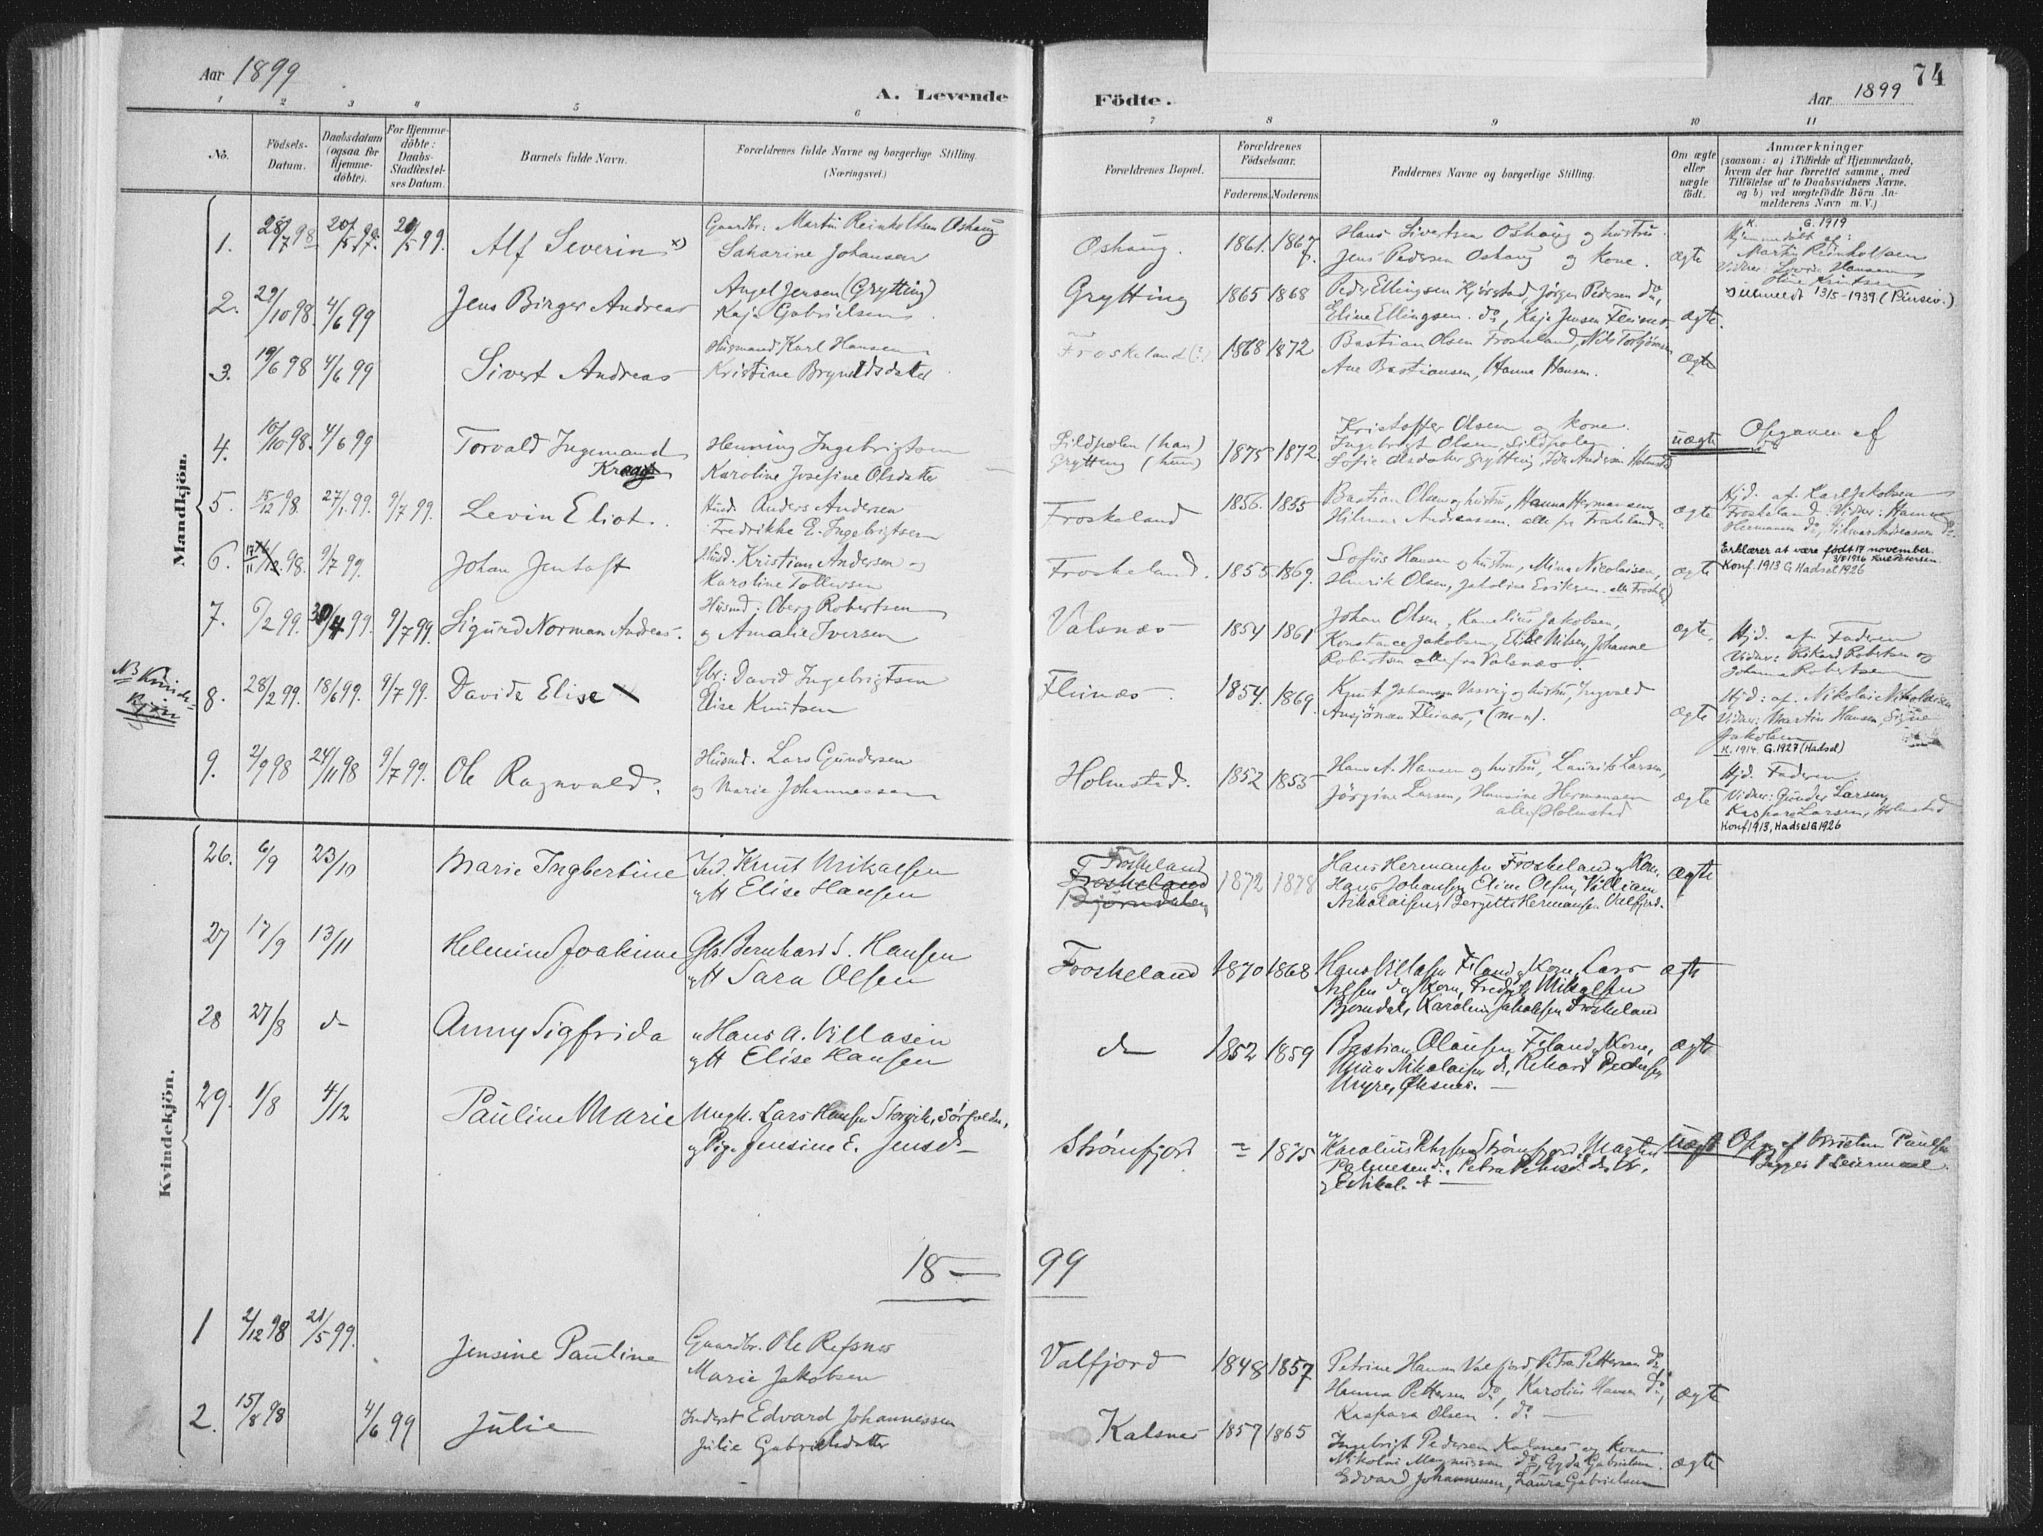 Aar 1899
A. Levende
Födte.
Aar 1899
74
1 2 3 4 5 6 7 8 9 10 11
No.
Födsels-Datum.
Daabsdatum (ogsaa for Hjemme-döbte).
For Hjemme-döbte: Daabs-Stadfæstel-ses Datum.
Barnets fulde Navn.
Forældrenes fulde Navne og borgerlige Stilling.
(Næringsvei.)
Forældrenes Bopæl.
Forældrenes Födselsaar.
Faderens Moderens
Faddernes Navne og borgerlige Stilling.
Om ægte eller uægte födt.
Anmærkninger
(saasom: a) i Tilfælde af Hjemmedaab, hvem der har forrettet samme, med Tilföielse af to Daabsvidners Navne, og b) ved uægtefödte Börn An-melderens Navn m. V.)
Mandkjön.
1. 28/7 98 20/5 99 99 Alf Severin x) Gaardbr: Martin Reinholtsen Oshaug
Saharine Johansen
Oshaug. 1861. 1867 Hans Sivertsen Oshaug og hustru.
Jens Pedersen Oshaug og Kone. ægte
K. G. 1919
Hjemmedøbt af:
Martin Reinholtsen
Vidner: Lovise Hansen
Udmeldt 13/5-1939 (Pinsev.)
2. 29/10 98. 4/6 99 Jens Birger Andreas Angel Jensen (Grytting)
Kaja Gabrielsen
Grytting 1865 1868 Peder Ellingsen Kjörstad, Jörgen Pedersen do,
Eline Ellingsen do, Kaja Jensen Fleines. ægte.
3. 19/6 98 4/6 99 Sivert Andreas Husmand Karl Hansen
Kristine Bryndsdatter
Froskeland (?) 1868 1872 Bastian Olsen Froskeland, Nils Torbjörnsen
Ane Bastiansen, Hanna Hansen. Ægte
4. 10/10 98. 4/6 99 Torvald Ingemand
Kraag
Henning Ingebrigtsen
Karoline Josefine Olsdatter
Sildpolen (han)
Grytting (hun)
1875 1872 Kristoffer Olsen og kone.
Ingebrigt Olsen, Sildpolen.
Sofie Olsdatter Grytting, Ida Andersen Holmstad
uægte Opgaven af
5. 15/12 98. 27/1 99. 9/7 99. Levin Eliot. Husd. Anders Andersen
Fredrikke E. Ingebrigtsen
Froskeland 1856. 1855 Bastian Olsen og hustru, Hanna Hermansen
Hilmar Andreassen. alle fra Froskeland. ægte
Hjd. af. Karl Jakobsen
Froskeland. Vidner: Hanna
Hermansen do, Hilmar Andreassen do.
6. 17/11 98. 9/7 99. Johan Jentoft Husd. Kristian Andersen og
Karoline Tollevsen
Froskeland. 1855. 1869. Sofus Hansen og hustru, Mina Nicolaisen,
Henrik Olsen, Jakobine Eriksen. alle Froskeld. ægte
Erklærer at være født 17 november.
Konf. 1913 G Hadsel 1926
7. 6/2 99. 30/4 99. 9/7 99. Sigurd Norman Andreas. Husmd: Oberg Robertsen
og Amalie Iversen
Valsnæs 1854 1861 Johan Olsen, Kornelius Jakobsen,
Konstance Jakobsen, Elise Nilsen, Johanne
Robertsen alle fra Valsnæs. ægte,
Hjd. af. Faderen
Vidner: Rikard Robertsen og
Johanna Robertsen
NB Kvinde-
kjøn
8. 28/2 99. 18/6 99. 9/7 99. Davida Elise Gbr: David Ingebrigtsen
Elise Knutsen
Fleinæs. 1854. 1869. Knut Johansen Vasvig og hustru, Ingvald
Ansjönsen Fleinæs, (m-n). ægte
Hjd: af. Nikolai Nikolaisen
Vidner: Martin Hansen, Signe
Jakobsen
K. 1914. G. 1927 (Hadsel)
9. 2/9 98 24/11 98 9/7 99. Ole Ragnvald. Husmd. Lars Gundersen
og Marie Johannessen
Holmstad. 1852 1855 Hans A. Hansen og hustru, Laurits Larsen,
Jörgine Larsen, Hansine Hermansen
alle Holmstad ægte
Hjd. Faderen.
Vidner: Gunder Larsen,
Kaspara Larsen, Holmstad
Konf 1913, Hadsel G 1926
Kvindekjön.
26. 6/9 23/10 Marie Ingbertine Ind. Knut Mikalsen
og H Elise Hansen
Froskeland
Froskeland
Bjørndalen
1872 1878 Hans Hermansen Froskeland og Kone,
Hans Johansen, Eline Olsen, Villiam
Nikolaisen, Bergitte Hermansen Valfjord. ægte
27 17/9 13/11 Helmine Joakime Gb. Bernhard S. Hansen
og H Sara Olsen
Froskeland 1870 1868 Hans Villassen F.land og Kone, Lars
Nilsen do og Kone, Fredrik Mikalsen
Bjørndal, Karoline Jakobsen Froskeland ægte
28 27/8 do Anny Sigfrida " Hans A. Villasen
og H Elise Hansen
do 1852 1859 Bastian Olausen F.land og Kone,
Mina Nikolaisen do, Rikard Pedersen
Myre, Øksnes. — ægte
29. 1/8 4/12 Pauline Marie Ungk. Lars Hansen Storvik, Sørfolden,
og Pige Jensine E. Jensd. —
Strømfjord = 1875 Karolius Strømfjord,
uægte Opg. af Kristen Paulsen
Begges 1 Leiermaal.
18—99
1 2/12 98 21/5 99. Jensine Pauline Gaardbr. Ole Refsnes
Marie Jakobsen
Valfjord 1848 1857 Petrine Hansen Valfjord, Petra Pettersen do
Hanna Pettersen do, Karolius Hansen do,
Kaspara Olsen. do — ægte
2. 15/8 98 4/6 99 Julie Inderst Edvard Johannessen
Julie Gabrielsdatter
Kalsnes 1857 1865 Ingebrigt Pedersen Kalsnes og kone
Nikolai Magnussen do, Gyda Gabrielsen.
Edvard Johannessen, Laura Gabrielsen ægte